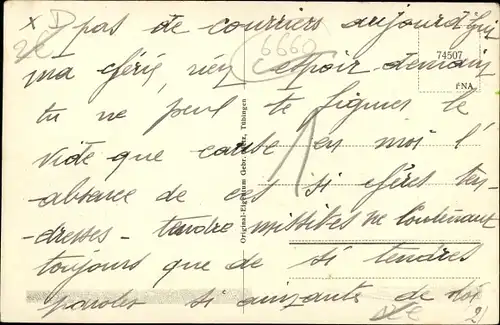 x D pas de courriers aujourd'hui
6660
ma chérie, espoir demain
74507
FNA.
tu ne peux te figurer le
vide que cause en moi l'
absence de ces si chères ten
-dresses- tendres missives ne contenant
toujours que de si tendres
paroles si aimantes de toi
2)
Original-Eigentum Gebr. Metz, Tübingen